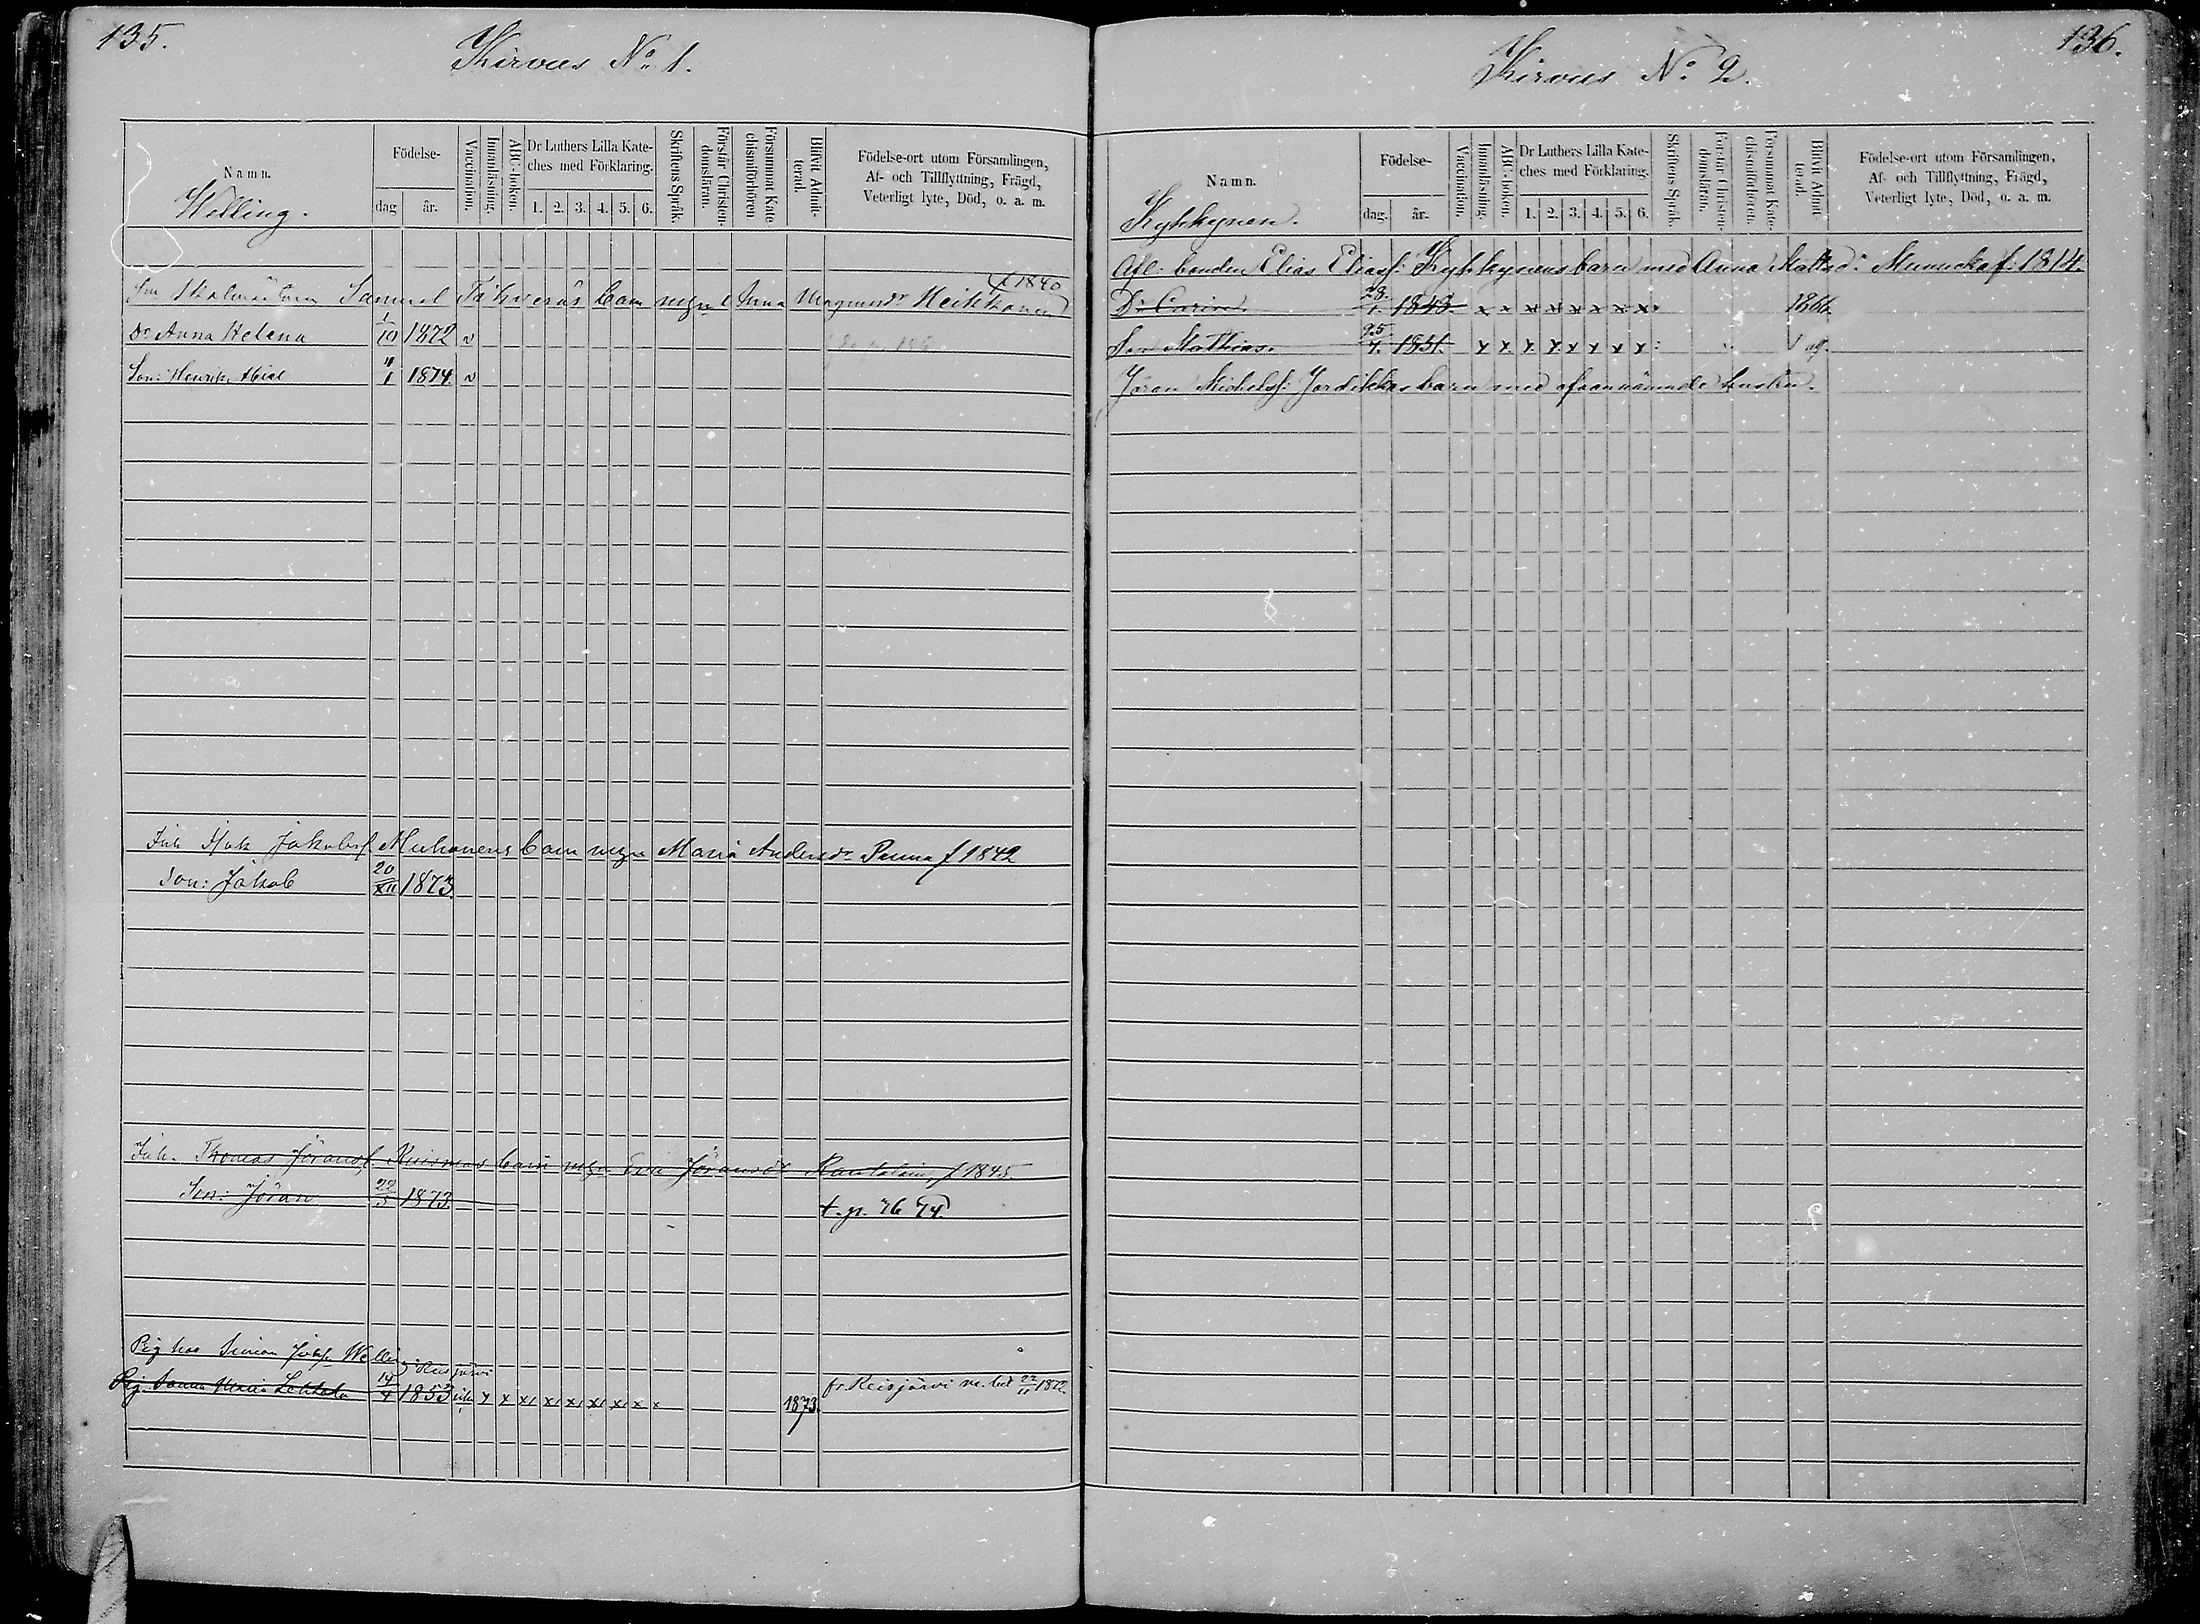 135.
Kirvus No 1.
Namn.
Födelse-
dag
år.
Vaccination.
Innanläsning.
ABC-boken.
Dr Luthers Lilla Kate-
ches med Förklaring.
1. 2. 3. 4. 5. 6.
Skriftens Språk.
Förstår Christen-
domsläran.
Försummat Kate-
chismiförhören
Blifvit Admit-
terad.
Födelse-ort utom Församlingen,
Af- och Tillflyttning, Frägd,
Veterligt lyte, Död, o. a. m.
Welling.
f 1840
Samuel barn Anna Magnusdr Heikkonen
Dr Anna Helena 1/10 1872 v
Son: Henrik Abiel 4/1 1874 v
Inh Isak Jakobsf. Muhonens barn Maria Andersdr Penna f 1842
Son: Jakob 20/XII 1873
Inh. Thomas Göransf. Ruismas barn Eva Göransdr Rantalain f 1845
Son: Göran 22/5 1873
t. p. 76 74
Pig hos Simon Welling
Reisjärvi
Pig Maria Lehtola 14/4 1853 x x x x x x x x x 1873. fr. Reisjärvi 22/11 1872
136.
Kirvus No 2.
Namn.
Födelse-
dag.
år.
Vaccination.
Innanläsning.
ABC-boken.
Dr Luthers Lilla Kate-
ches med Förklaring.
1. 2. 3. 4. 5. 6.
Skriftens Språk.
Förstår Christen-
domsläran.
Försummat Kate-
chismiförhören.
Blifvit Admit-
terad.
Födelse-ort utom Församlingen,
Af- och Tillflyttning, Frägd,
Veterligt lyte, Död, o. a. m.
Kykkynen.
Afl. bonden Elias Eliasf. Kykkynens barn med Anna Mattsdr Munukka f. 1814.
Dr Carin 28/1. 1843. x x x x x x x x x 1866.
Son Mathias. 25/4. 1851. x x x x x x x x x
Göran Michelsf. Jordikkas barn med ofvannämnde hustru.